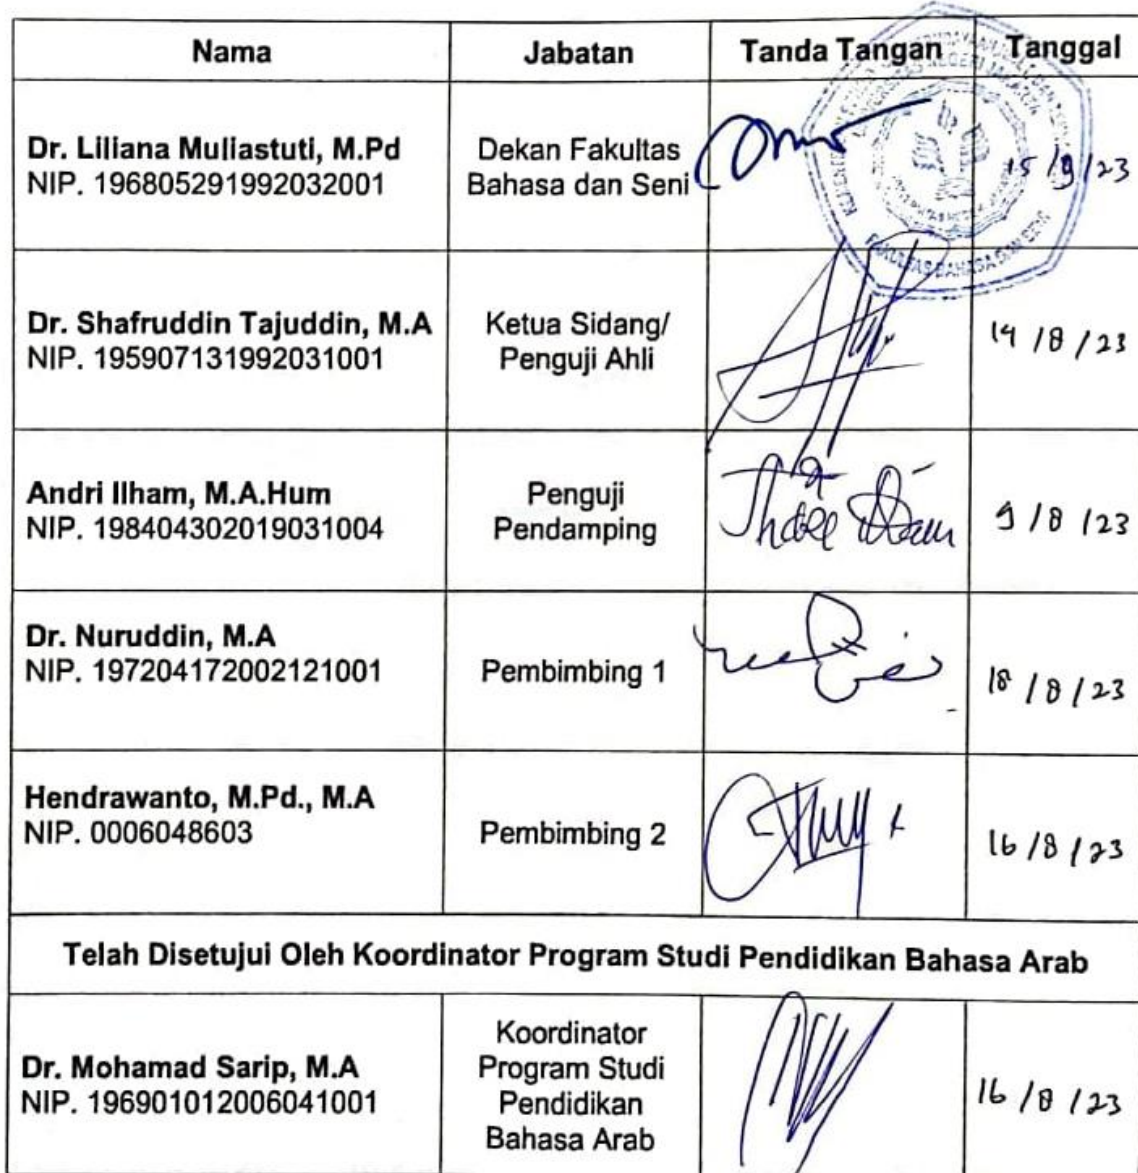 Nama Jabatan Tanda Tangan Tanggal
Dr. Liliana Muliastuti, M.Pd
NIP. 196805291992032001
Dekan Fakultas
Bahasa dan Seni
FAKULTAS BAHASA DAN SENI
Dr. Shafruddin Tajuddin, M.A
NIP. 195907131992031001
Ketua Sidang/
Penguji Ahli
14/8/23
Andri Ilham, M.A.Hum
NIP. 198404302019031004
Penguji
Pendamping
9/8/23
Dr. Nuruddin, M.A
NIP. 197204172002121001
Pembimbing 1
18/8/23
Hendrawanto, M.Pd., M.A
NIP. 0006048603
Pembimbing 2
16/8/23
Telah Disetujui Oleh Koordinator Program Studi Pendidikan Bahasa Arab
Dr. Mohamad Sarip, M.A
NIP. 196901012006041001
Koordinator
Program Studi
Pendidikan
Bahasa Arab
16/8/23